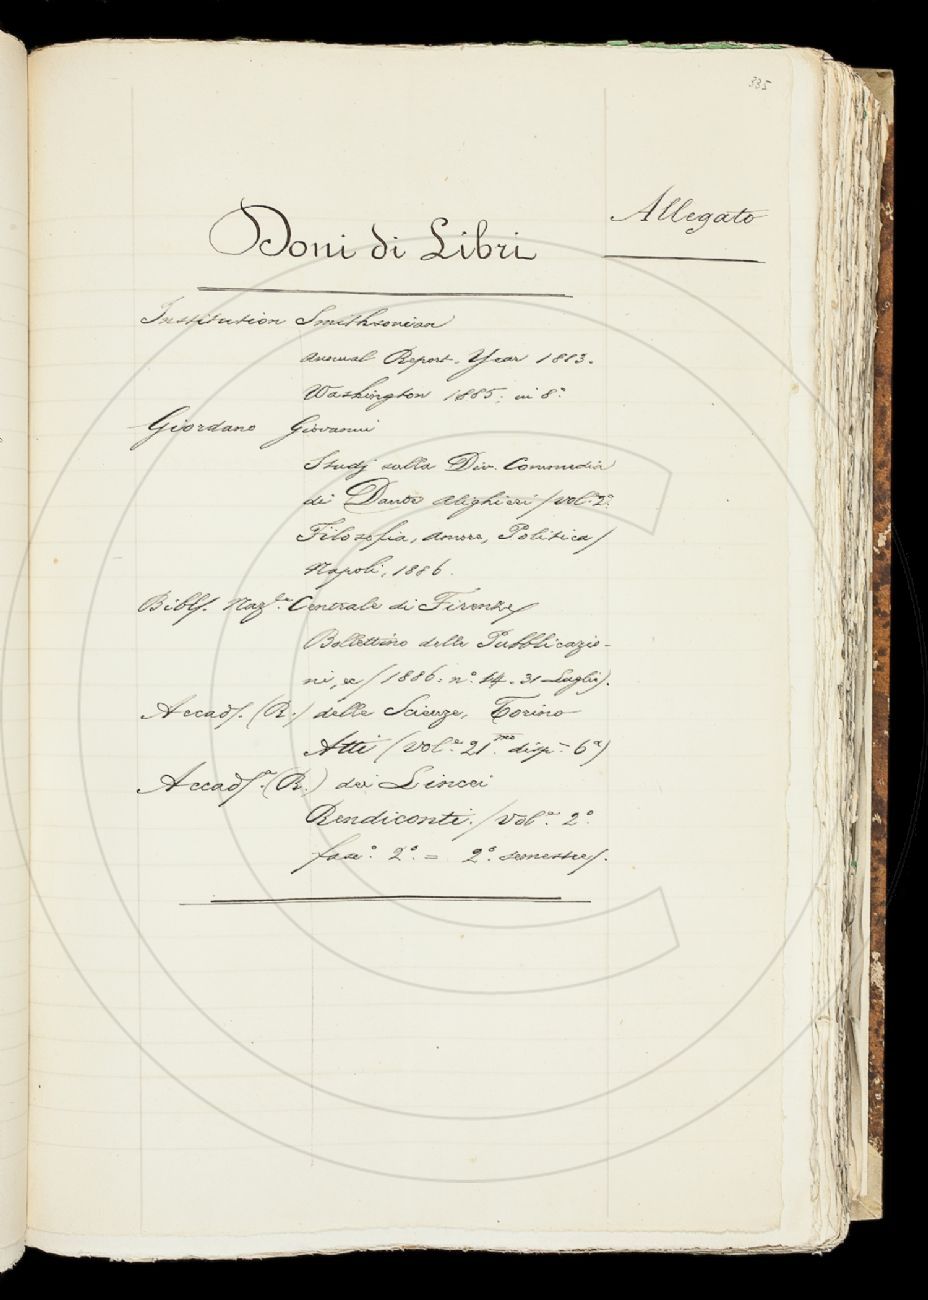 335
Allegato
Doni di Libri
Institution Smithsonian
Annual Report. Year 1883.
Washington 1885; in 8°
Giordano Giovanni
Studj sulla Div. Commedia
di Dante Alighieri (vol. 2°.
Filosofia, Amore, Politica)
Napoli, 1886.
Bibl. Naz.le Centrale di Firenze
Bollettino delle Pubblicazio-
ni, &c (1886: n°. 14. 31 Luglio).
Accad. (R.) delle Scienze, Torino
Atti (Vol.e 21.mo disp. 6a)
Accad.a (R.) dei Lincei
Rendiconti. (Vol.e 2°.
fasc°. 2°. = 2°. semestre).